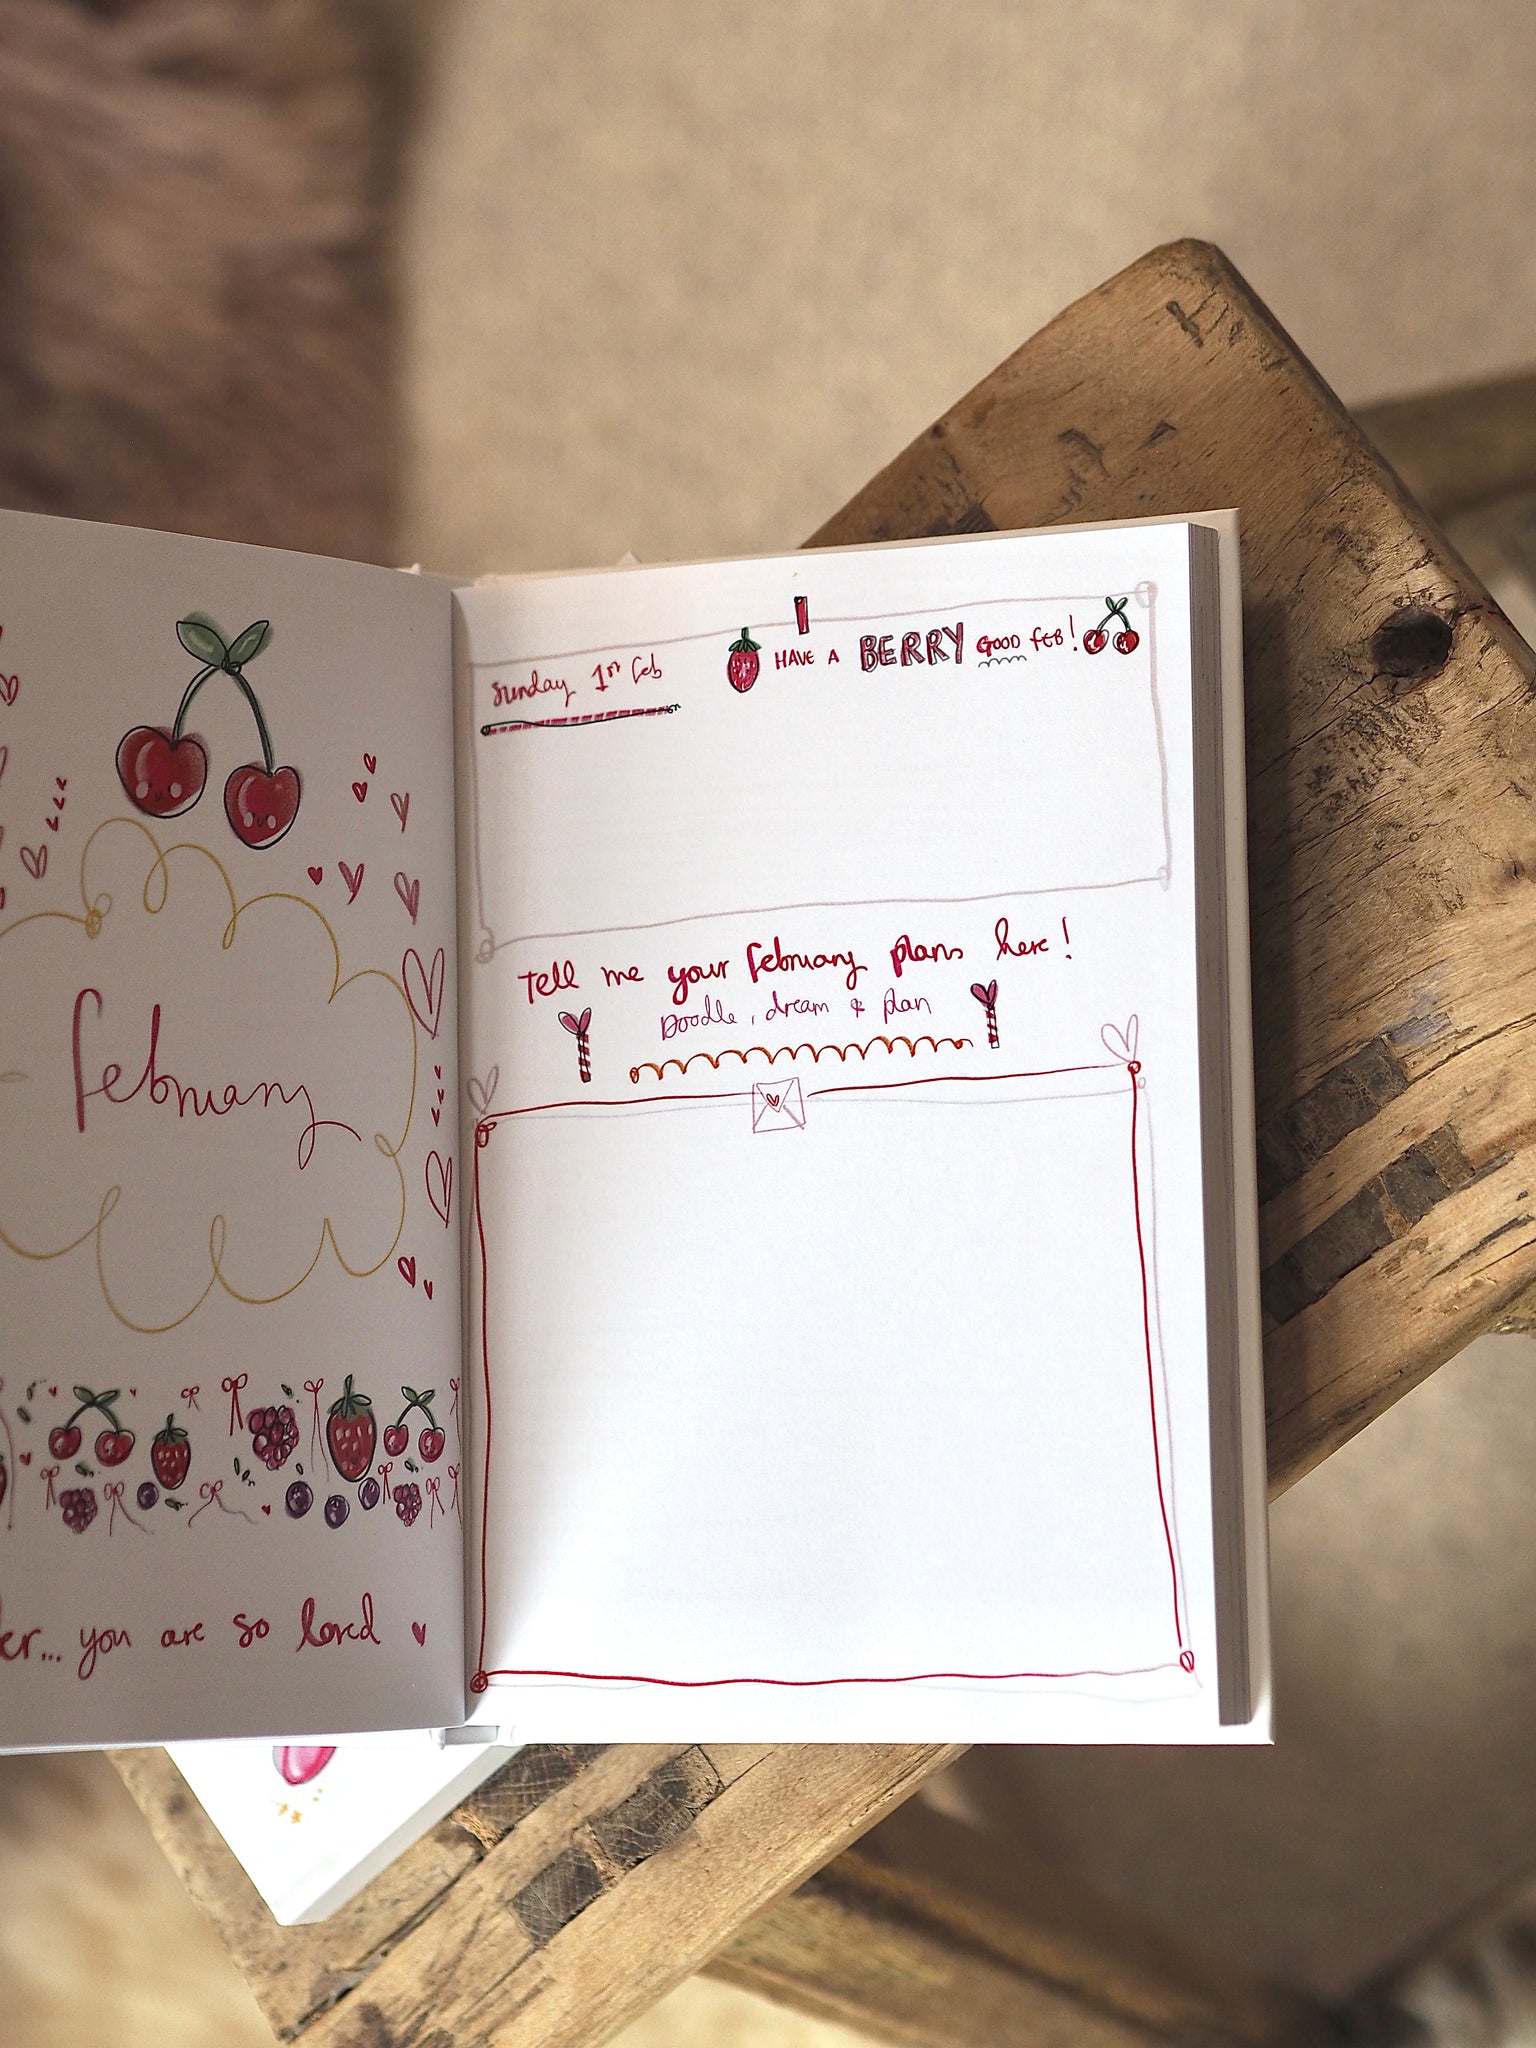 February
you are so loved
HAVE A BERRY GOOD FEB!
Sunday 1st Feb
Tell me your February plans here!
Doodle, dream & plan